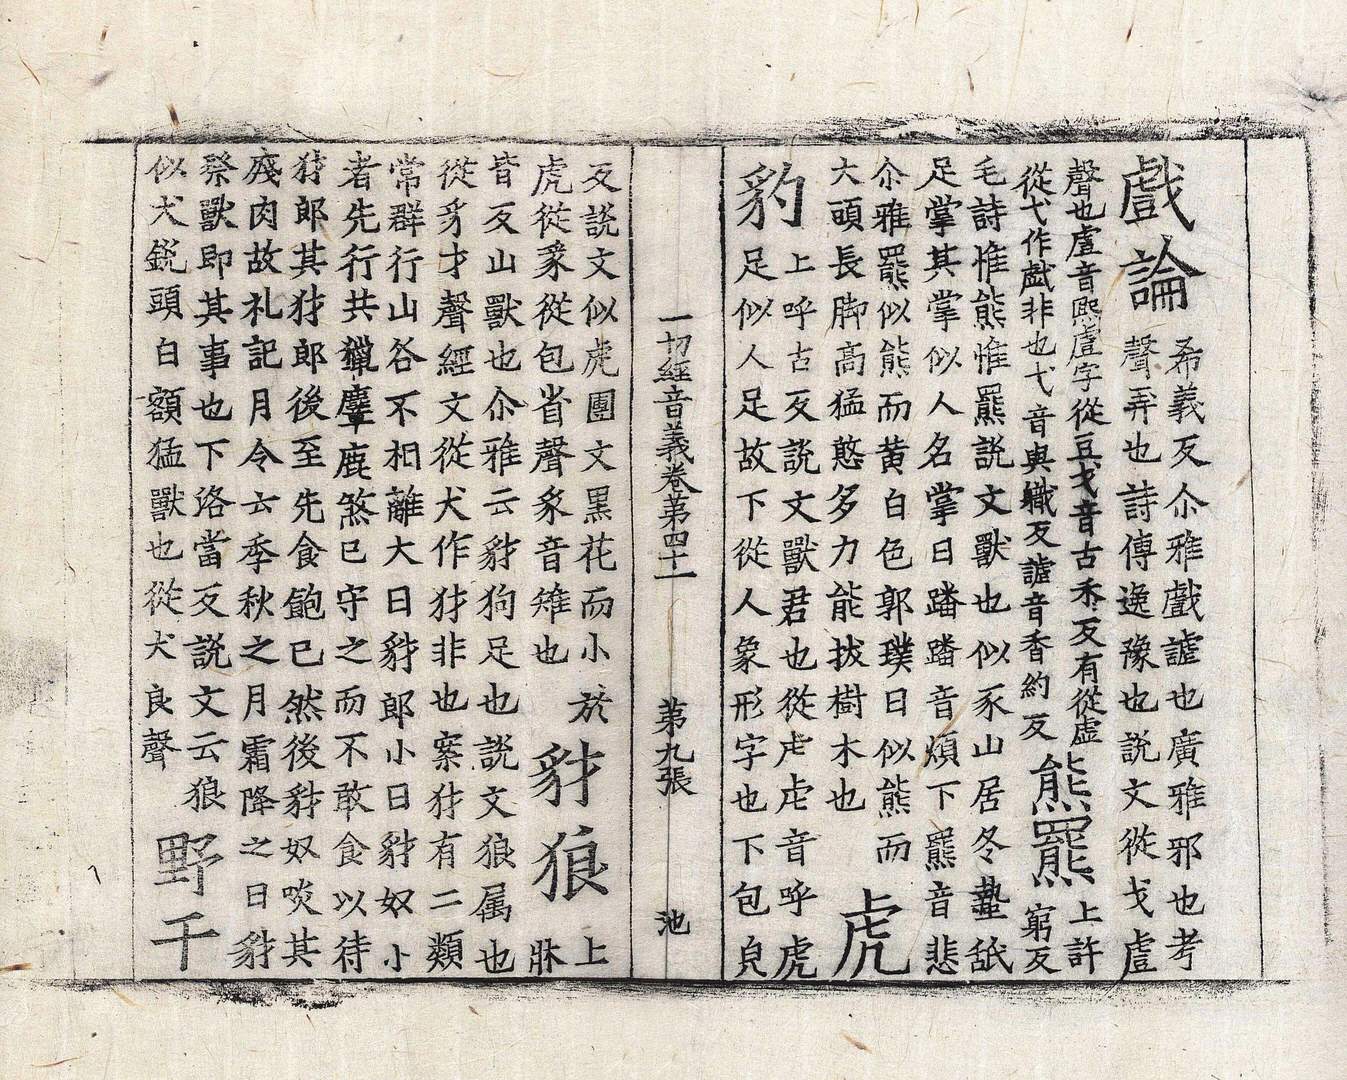 戲論
希義反尒雅戲謔也廣雅邪也考
聲弄也詩傳逸豫也說文從戈䖒
聲也䖒音熈䖒字從豆戈音古禾反有從虛
從弋作戯非也弋音與職反謔音香約反
熊羆
上許
窮反
毛詩惟熊惟羆說文獸也似豕山居冬蟄舐
足掌其掌似人名掌曰蹯蹯音煩下羆音悲
尒雅羆似熊而黄白色郭璞曰似熊而
大頭長脚髙猛憨多力能拔樹木也
虎
豹
上呼古反說文獸君也從虍虍音呼虎
足似人足故下從人象形字也下包皃
一切經音義卷第四十一 第九張 池
反說文似虎團文黑花而小於
虎從豸從包省聲豸音雉也
豺狼
上
牀
皆反山獸也尒雅云豺狗足也說文狼属也
從豸才聲經文從犬作犲非也案犲有二類
常群行山谷不相離大曰豺郎小曰豺奴小
者先行共獵麞鹿煞已守之而不敢食以待
犲郎其犲郎後至先食飽已然後豺奴啖其
殘肉故礼記月令云季秋之月霜降之日豺
祭獸即其事也下洛當反說文云狼
似犬銳頭白額猛獸也從犬良聲
野干